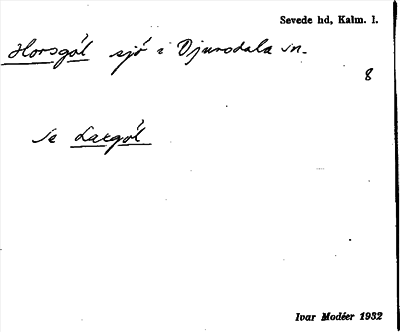 Sevede hd, Kalm. l.
Horsgöl sjö i Djursdala sn.
8
Se Laxgöl
Ivar Modéer 1932